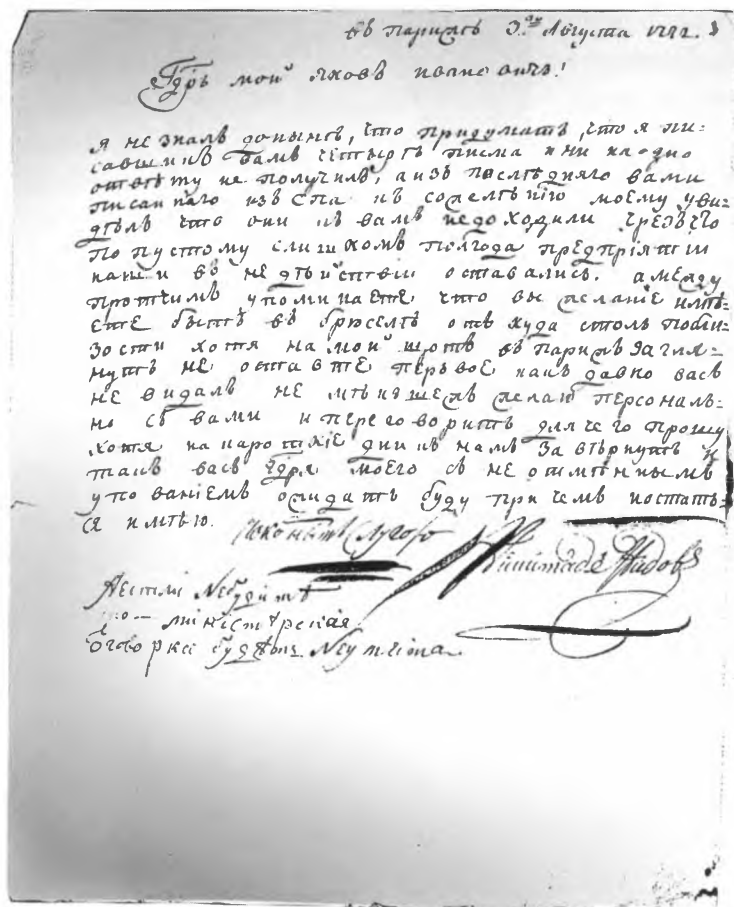 въ парижѣ 3.го Августа 1772.
Гдрь мой яковъ ивановичъ!
я не зналъ донынѣ, что придумать, что я пи=
савши къ вамъ четыре писма и ни на одно
отвѣту не получилъ, а изъ послѣдняго вами
писаннаго изъ Спа къ сожелѣнію моему уви
дѣлъ что они къ вамъ недоходили чрезъ что
попустому слишкомъ полгода предпріятіи
наши въ недѣйствіи оставались. а между
протчимъ упоминаете что вы желаніе имѣ=
ете быть въ брюселѣ откуда столь побли
зости хотя на мой щотъ въ парижъ загля=
нуть не оставте первое какъ давно васъ
не видалъ не мѣншежъ желаю персоналъ=
но съ вами и переговорить для чего прошу
хотя на короткіе дни къ намъ завѣрнуть и
такъ васъ Гдря моего съ не отмѣннымъ
упованіемъ ожидать буду при чемъ и остать=
ся имѣю.
слугою
Аестли Небудитѣ
министерская
оговорка будѣтъ Неучтива